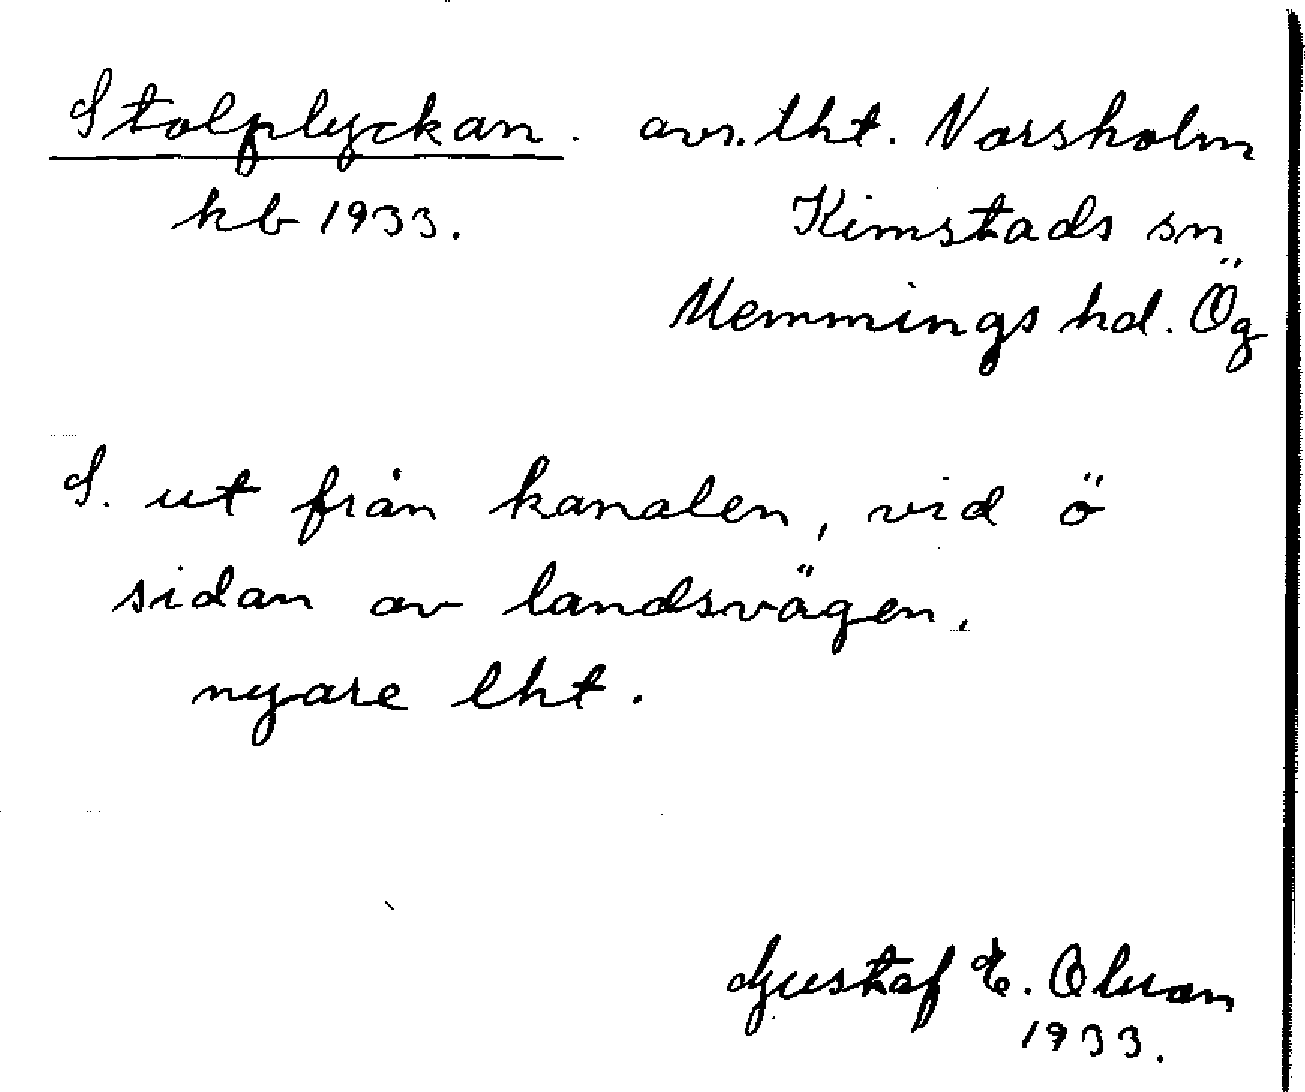 Stolplyckan. avs. lht. Norsholm
kb 1933. Kimstads sn
Memmings hd. Ög
S. ut från kanalen, vid ö
sidan av landsvägen.
nyare lht.
Gustaf E. Olsson
1933.